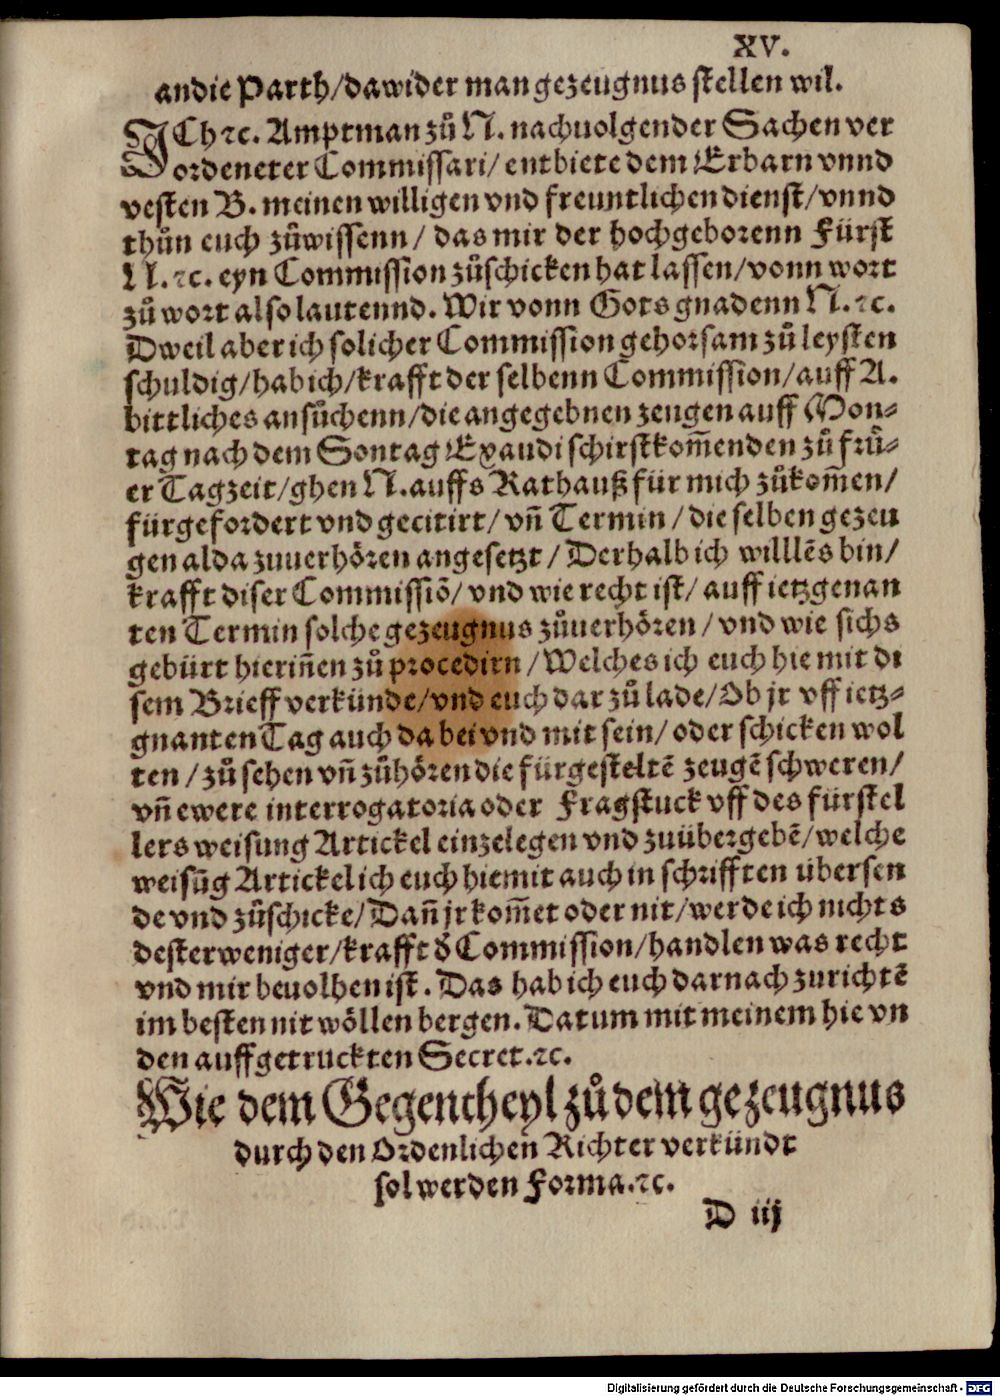 XV.
an die Parth/ da wider man gezeugnus stellen wil.
ICh ꝛc. Amptman zů N. nachuolgender Sachen ver
ordeneter Commissari/ entbiete dem Erbarn vnnd
vesten B. meinen willigen vnd freuntlichen dienst/ vnnd
thůn euch zůwissenn/ das mir der hochgeborenn Fürst
N. ꝛc. eyn Commission zůschicken hat lassen/ vonn wort
zů wort also lautennd. Wir vonn Gots gnadenn N. ꝛc.
Dweil aber ich solicher Commission gehorsam zů leysten
schuldig/ hab ich/ krafft der selbenn Commission/ auff A.
bittliches ansůchenn/ die angegebnen zeugen auff Mon⸗
tag nach dem Sontag Exaudi schirstkom̄enden zů frů⸗
er Tagzeit/ ghen N. auffs Rathauß für mich zůkom̄en/
fürgefordert vnd gecitirt/ vn̄ Termin/ die selben gezeu
gen alda zuuerhören angesetzt/ Derhalb ich willlẽs bin/
krafft diser Commissiõ/ vnd wie recht ist/ auff ietzgenan
ten Termin solche gezeugnus zůuerhören/ vnd wie sichs
gebürt hierin̄en zů procedirn/ Welches ich euch hie mit di
sem Brieff verkünde/ vnd euch dar zů lade/ Ob jr vff ietz⸗
gnanten Tag auch da bei vnd mit sein/ oder schicken wol
ten/ zů sehen vn̄ zůhören die fürgesteltẽ zeugẽ schweren/
vn̄ ewere interrogatoria oder Fragstuck vff des fürstel
lers weisung Artickel einzelegen vnd zuübergebẽ/ welche
weisũg Artickel ich euch hiemit auch in schrifften übersen
de vnd zůschicke/ Dan̄ jr kom̄et oder nit/ werde ich nichts
desterweniger/ krafft d̕ Commission/ handlen was recht
vnd mir beuolhen ist. Das hab ich euch darnach zurichtẽ
im besten nit wöllen bergen. Datum mit meinem hie vn
den auffgetruckten Secret. ꝛc.
Wie dem Gegentheyl zů dem gezeugnus
durch den Ordenlichen̄ Richter verkündt
sol werden Forma. ꝛc.
D iij
Digitalisierung gefördert durch die Deutsche Forschungsgemeinschaft - DFG